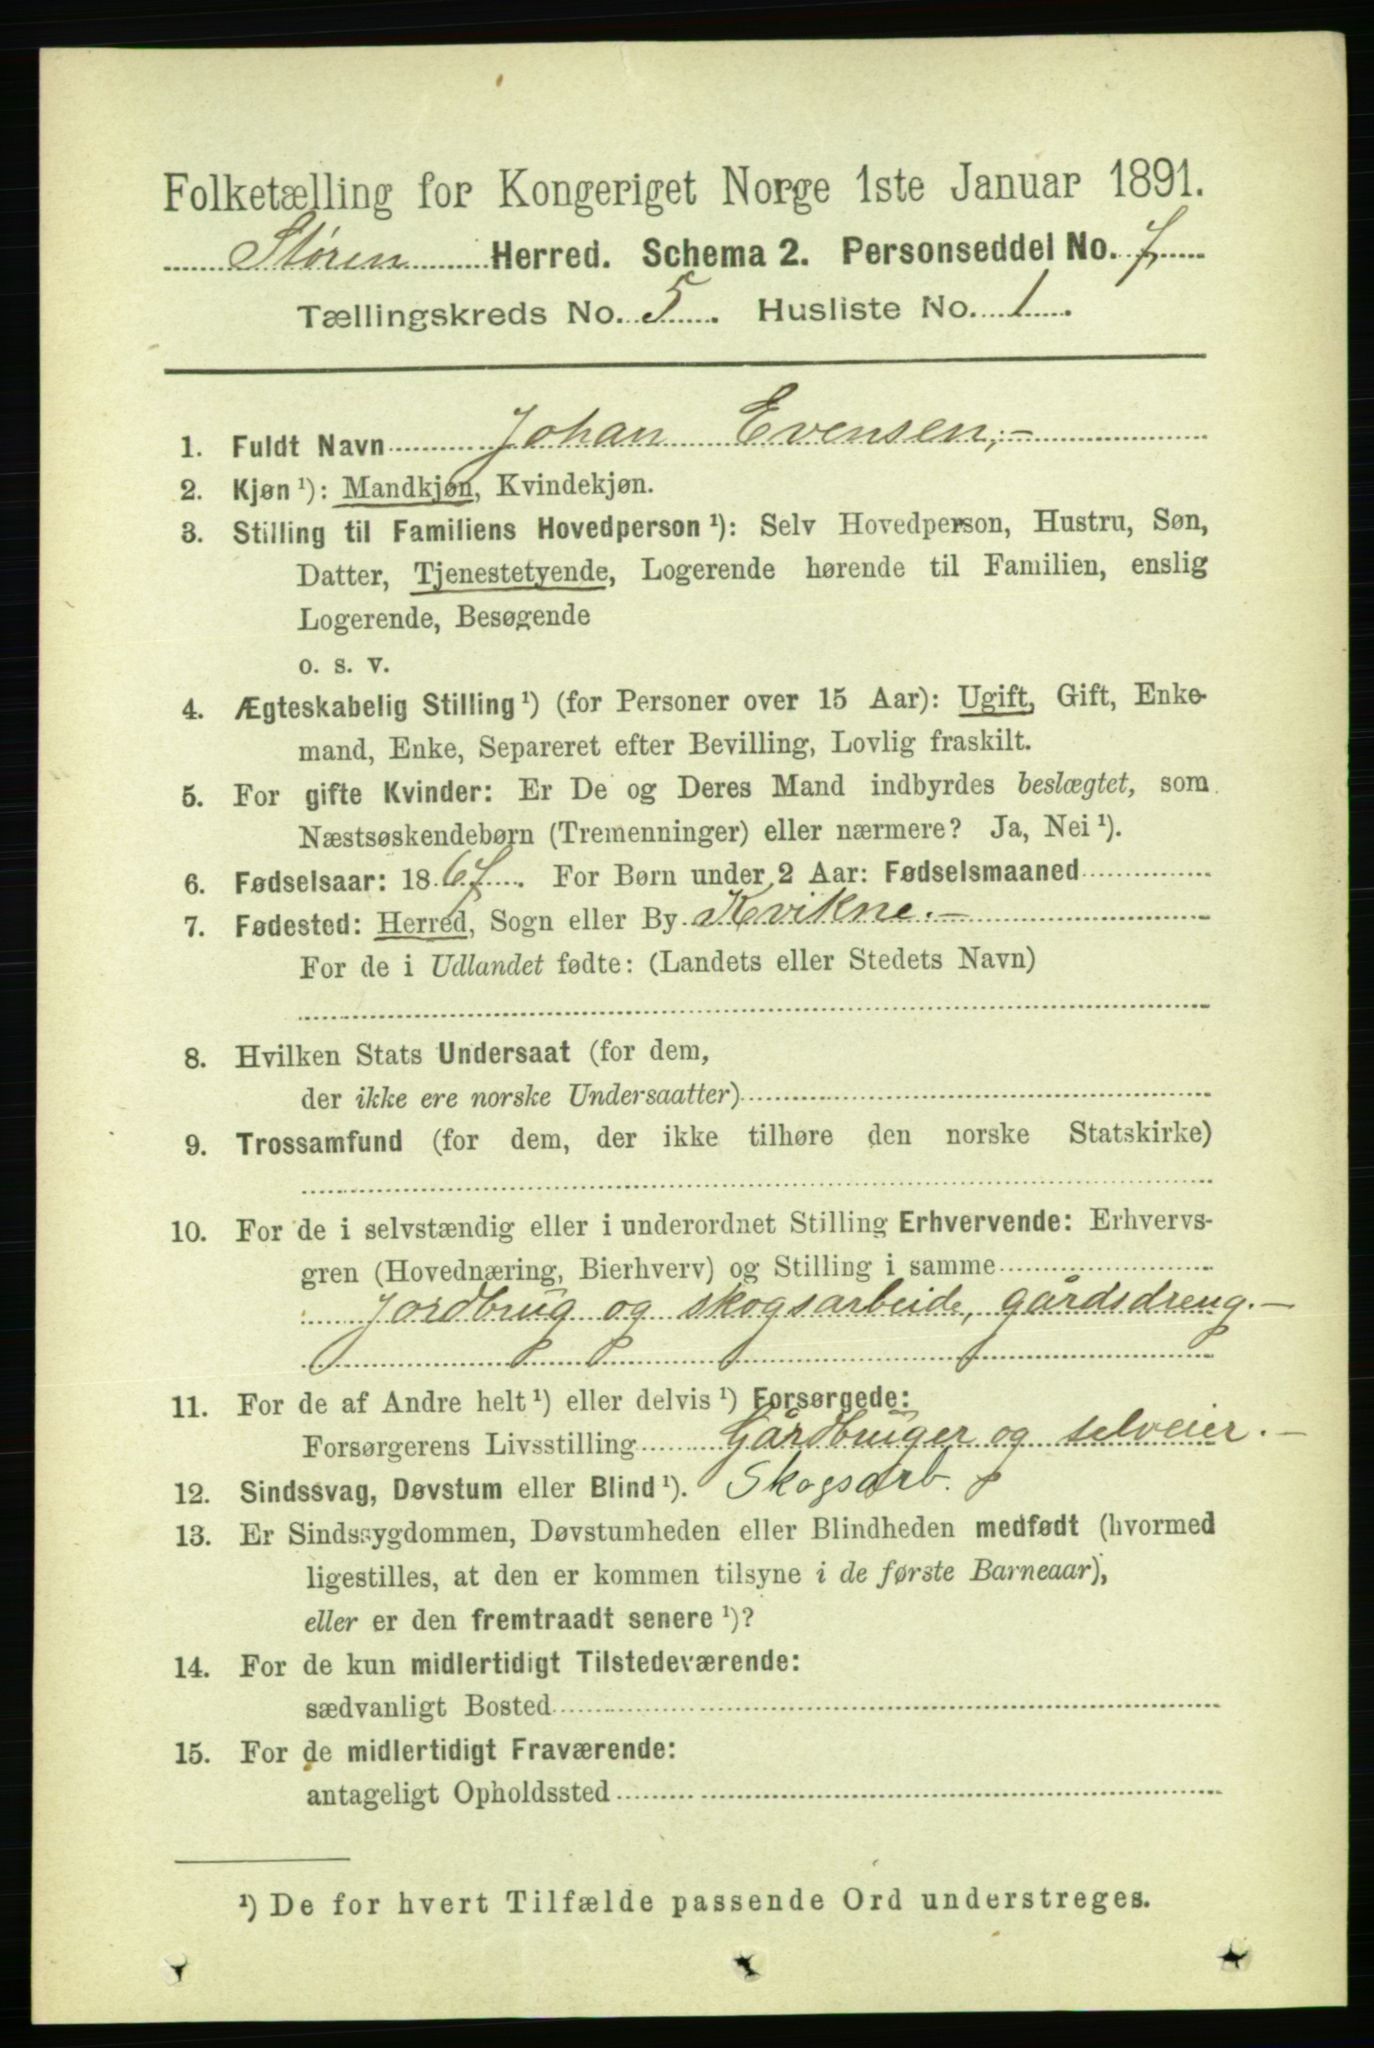 Folketælling for Kongeriget Norge 1ste Januar 1891.
Støren Herred. Schema 2. Personseddel No. 7
Tællingskreds No. 5. Husliste No. 1.
1. Fuldt Navn Johan Evensen,-
2. Kjøn ¹): Mandkjøn, Kvindekjøn.
3. Stilling til Familiens Hovedperson ¹): Selv Hovedperson, Hustru, Søn,
Datter, Tjenestetyende, Logerende hørende til Familien, enslig
Logerende, Besøgende
o. s. v.
4. Ægteskabelig Stilling ¹) (for Personer over 15 Aar): Ugift, Gift, Enke-
mand, Enke, Separeret efter Bevilling, Lovlig fraskilt.
5. For gifte Kvinder: Er De og Deres Mand indbyrdes beslægtet, som
Næstsøskendebørn (Tremenninger) eller nærmere? Ja, Nei ¹).
6. Fødselsaar: 1867. For Børn under 2 Aar: Fødselsmaaned
7. Fødested: Herred, Sogn eller By Kvikne.-
For de i Udlandet fødte: (Landets eller Stedets Navn)
8. Hvilken Stats Undersaat (for dem,
der ikke ere norske Undersaatter)
9. Trossamfund (for dem, der ikke tilhøre den norske Statskirke)
10. For de i selvstændig eller i underordnet Stilling Erhvervende: Erhvervs-
gren (Hovednæring, Bierhverv) og Stilling i samme
Jordbrug og skogsarbeide, gårdsdreng.-
11. For de af Andre helt ¹) eller delvis ¹) Forsørgede:
Forsørgerens Livsstilling Gårdbruger og selveier.-
12. Sindssvag, Døvstum eller Blind ¹). Skogsarb.
13. Er Sindssygdommen, Døvstumheden eller Blindheden medfødt (hvormed
ligestilles, at den er kommen tilsyne i de første Barneaar),
eller er den fremtraadt senere ¹)?
14. For de kun midlertidigt Tilstedeværende:
sædvanligt Bosted
15. For de midlertidigt Fraværende:
antageligt Opholdssted
¹) De for hvert Tilfælde passende Ord understreges.